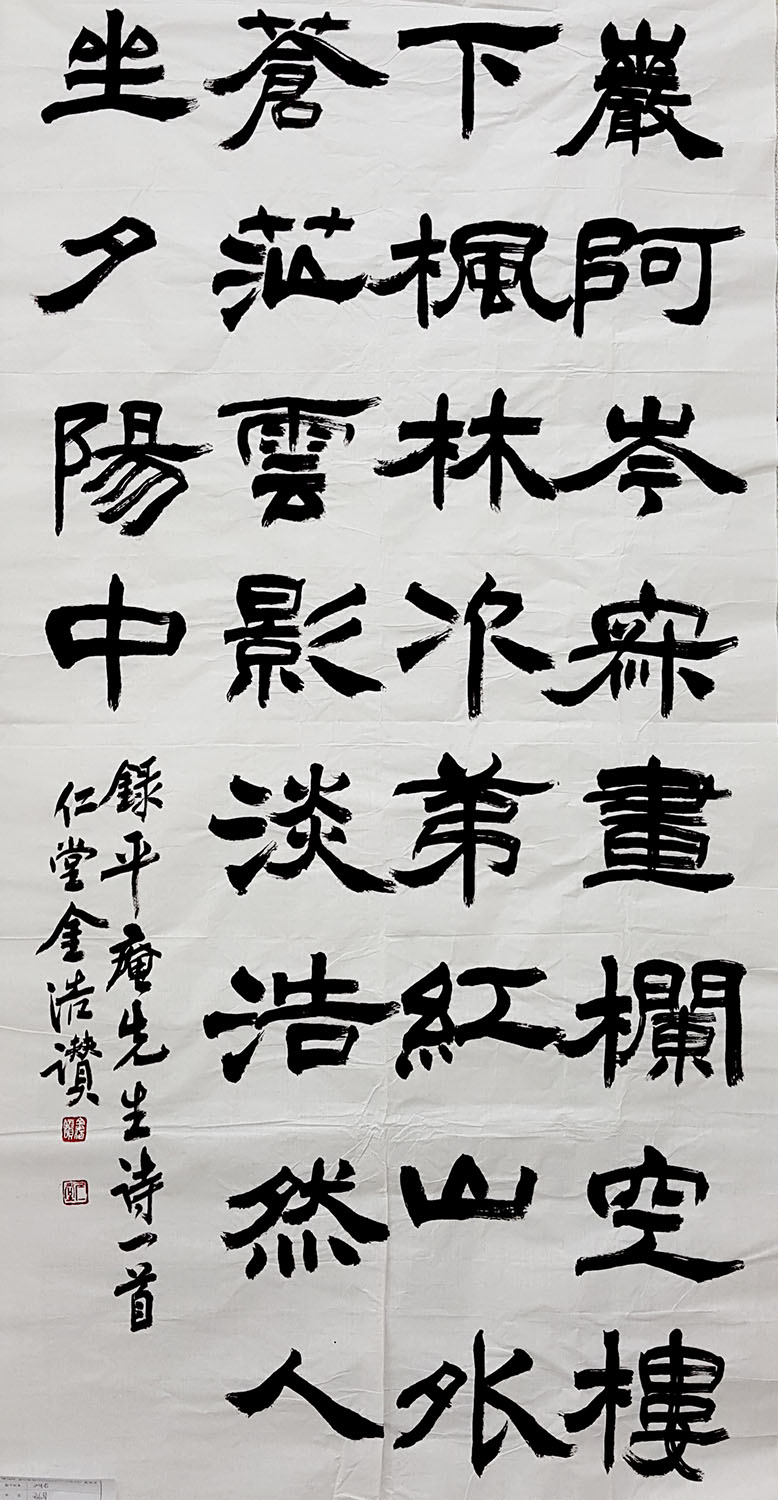 巖阿岑寂畫欄空樓
下楓林次第紅山外
蒼茫雲影淡浩然人
坐夕陽中
錄平庵先生詩一首
仁堂金浩讚
仁堂